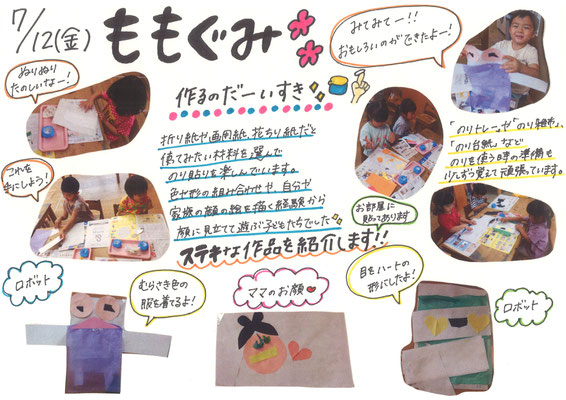 7/12(金) ももぐみ
ぬりぬり
たのしいなー!
みてみてー!!
おもしろいのができたよー!
作るのだーいすき
折り紙や画用紙、花ちり紙など
使ってみたい材料を選んで
のり貼りを楽しんでいます。
色や形の組み合わせや、自分や
家族の顔の絵を描く経験から
顔に見立てて遊ぶ子どもたちでした
ステキな作品を紹介します!!
これを
手にしよう!
お部屋に
貼ってあります
「のりトレー」や「のり雑巾」、
「のり台紙」など
のりを使う時の準備も
少しずつ覚えて頑張っています。
ロボット
むらさき色の
服を着てるよ!
ママのお顔
目をハートの
形にしたよ!
ロボット